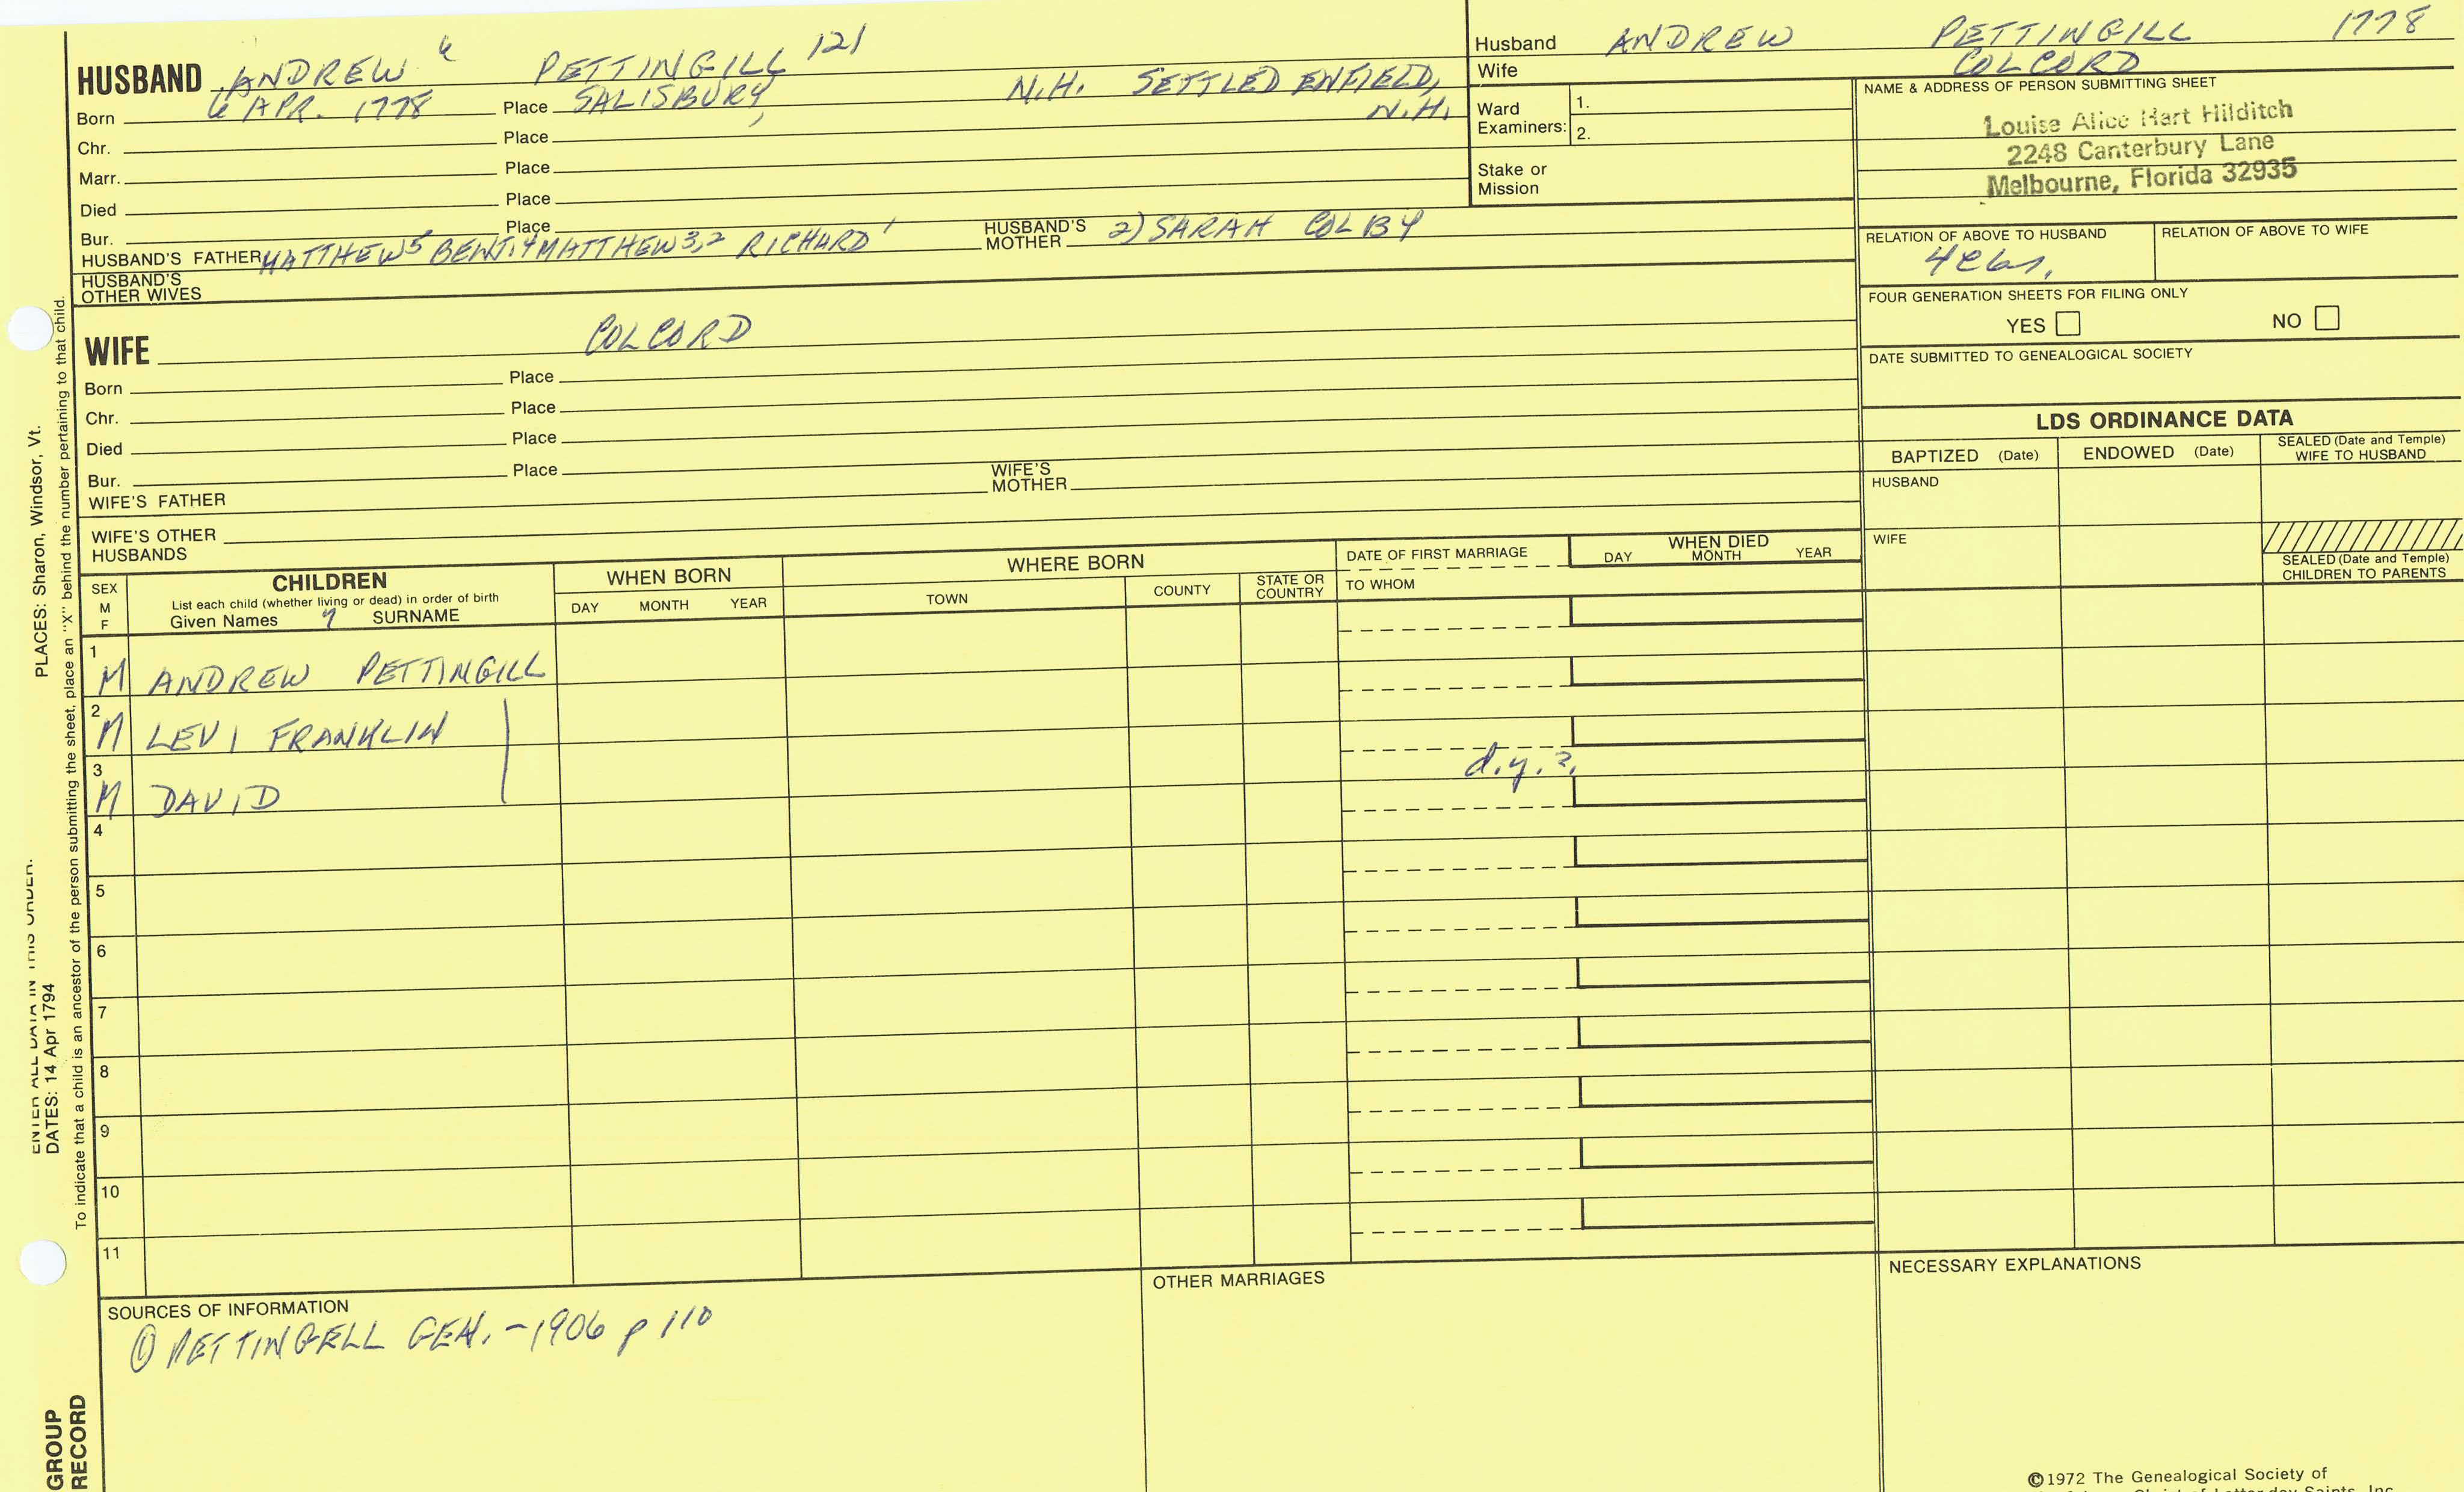 HUSBAND ANDREW 6 PETTINGILL 121
Born 6 APR. 1778 Place SALISBURY, N.H. SETTLED ENFIELD, N.H.
Chr. Place
Marr. Place
Died Place
Bur. Place
HUSBAND'S FATHER MATTHEW5 BENJ.4 MATTHEW3,2 RICHARD1 HUSBAND'S MOTHER 2) SARAH COLBY
HUSBAND'S OTHER WIVES
WIFE COLCORD
Born Place
Chr. Place
Died Place
Bur. Place
WIFE'S FATHER WIFE'S MOTHER
WIFE'S OTHER HUSBANDS
Husband ANDREW PETTINGILL 1778
Wife COLCORD
Ward Examiners: 1.
2.
Stake or Mission
NAME & ADDRESS OF PERSON SUBMITTING SHEET
Louise Alice Hart Hilditch
2248 Canterbury Lane
Melbourne, Florida 32935
RELATION OF ABOVE TO HUSBAND RELATION OF ABOVE TO WIFE
FOUR GENERATION SHEETS FOR FILING ONLY
YES NO
DATE SUBMITTED TO GENEALOGICAL SOCIETY
LDS ORDINANCE DATA
BAPTIZED (Date) ENDOWED (Date) SEALED (Date and Temple) WIFE TO HUSBAND
HUSBAND
WIFE
SEALED (Date and Temple) CHILDREN TO PARENTS
SEX M F
CHILDREN
List each child (whether living or dead) in order of birth
Given Names 7 SURNAME
WHEN BORN
DAY MONTH YEAR
WHERE BORN
TOWN COUNTY STATE OR COUNTRY
DATE OF FIRST MARRIAGE
TO WHOM
WHEN DIED
DAY MONTH YEAR
1 M ANDREW PETTINGILL
2 M LEVI FRANKLIN
3 M DAVID d.y.?
4
5
6
7
8
9
10
11
SOURCES OF INFORMATION
① PETTINGELL GEN. - 1906 p 110
OTHER MARRIAGES
NECESSARY EXPLANATIONS
©1972 The Genealogical Society of
PLACES: Sharon, Windsor, Vt.
ENTER ALL DATA IN THIS ORDER:
DATES: 14 Apr 1794
To indicate that a child is an ancestor of the person submitting the sheet, place an "X" behind the number pertaining to that child.
GROUP
RECORD